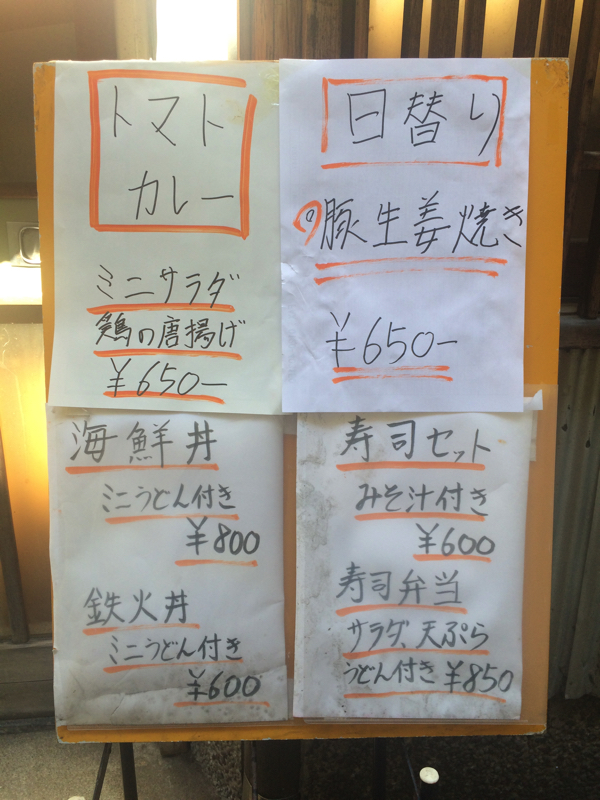 トマト
カレー
ミニサラダ
鶏の唐揚げ
¥650-
日替り
豚生姜焼き
¥650-
海鮮丼
ミニうどん付き
¥800
鉄火丼
ミニうどん付き
¥600
寿司セット
みそ汁付き
¥600
寿司弁当
サラダ、天ぷら
うどん付き ¥850